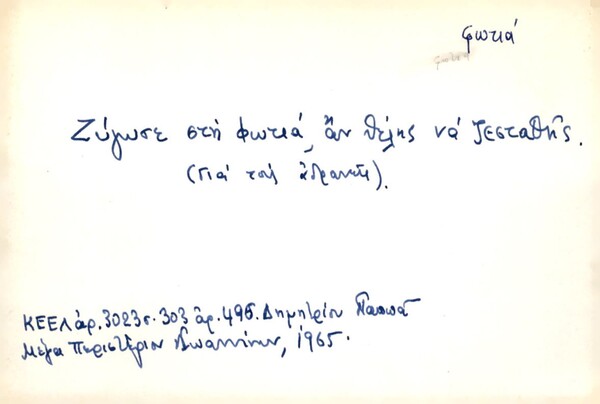 φωτιά
Ζύγωσε στή φωτιά, ἄν θέλῃς νά ζεσταθῇς.
(Γιά τούς ἀδρανεῖς).
ΚΕΕΛ ἀρ. 3023 σ. 303 ἀρ. 496. Δημητρίου Παππᾶ
Μέγα Περιστέριον Ἰωαννίνων, 1965.